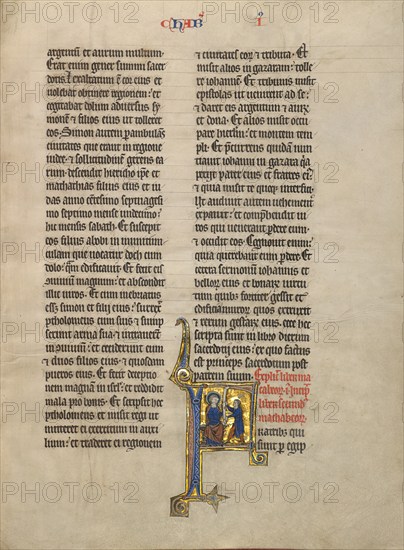 MACHAB I
argentū et aurum multum.
Erat enim gener summi sacer
dotis. Et exaltatum ē cor eius et
volebat obtinere regionem: et
cogitabat dolum adversus sy
monē et filios eius ut tolleret
eos. Simon autem pambulās
civitates que erant in regione
iudee: et sollicitudinē gerens ea
rum: descendit hiericho ipse et
mathathias filius eius et iu
das anno centesimo septuagesi
mo septimo mense undecimo:
hic mensis sabath. Et suscepit
eos filius abobi in munitiun
culam que vocatur doch cum
dolo: quā edificavit. Et fecit eis
convivium magnum: et abscondit
illic viros. Et cum inebriatus
esset simon et filii eius: surrex
ptholomeus cum suis et sumpse
runt arma sua: et intraverunt
in convivium: et occiderunt eum
et duos filios eius et quosdam
pueros eius. Et fecit deceptio
nem magnam in isrl: et reddidit
mala pro bonis. Et scripsit hec
ptholomeus et misit regi ut
mitteret ei exercitum in auxi
lium: et traderet ei regionem
et civitates eoꝝ et tributa. Et
misit alios in gazaram: tolle
re iohannem: et tribunis misit
epistolas ut venirent ad se:
et daret eis argentum et aurū
et dona. Et alios misit occu
pare hierlm: et montem tem
pli. Et precurrens quidā nun
tiavit iohanni in gazara qa
periit pater eius et fratres ei:
et quia misit te quoqꝫ interfici.
Ut audivit autem vehementer
expavit: et comprehendit vi
ros qui venerant perdere eum:
et occidit eos. Cognovit enim:
quia querebant eum perdere. Et
cetera sermonum iohannis et
bellorꝫ eius et bonarꝫ virtu
tum quibus fortiter gessit et
edificii muroꝝ quos extruxit
et rerum gestarꝫ eius: ecce hec
scripta sunt in libro dierum
sacerdotii eius: ex quo factus
est princeps sacerdotum post
patrem suum. Explic liber ma
chabeoꝝ i. Incip
liber secund
machabeoꝝ.
FRATRIBUS qui
sunt per egip
PHOTO12